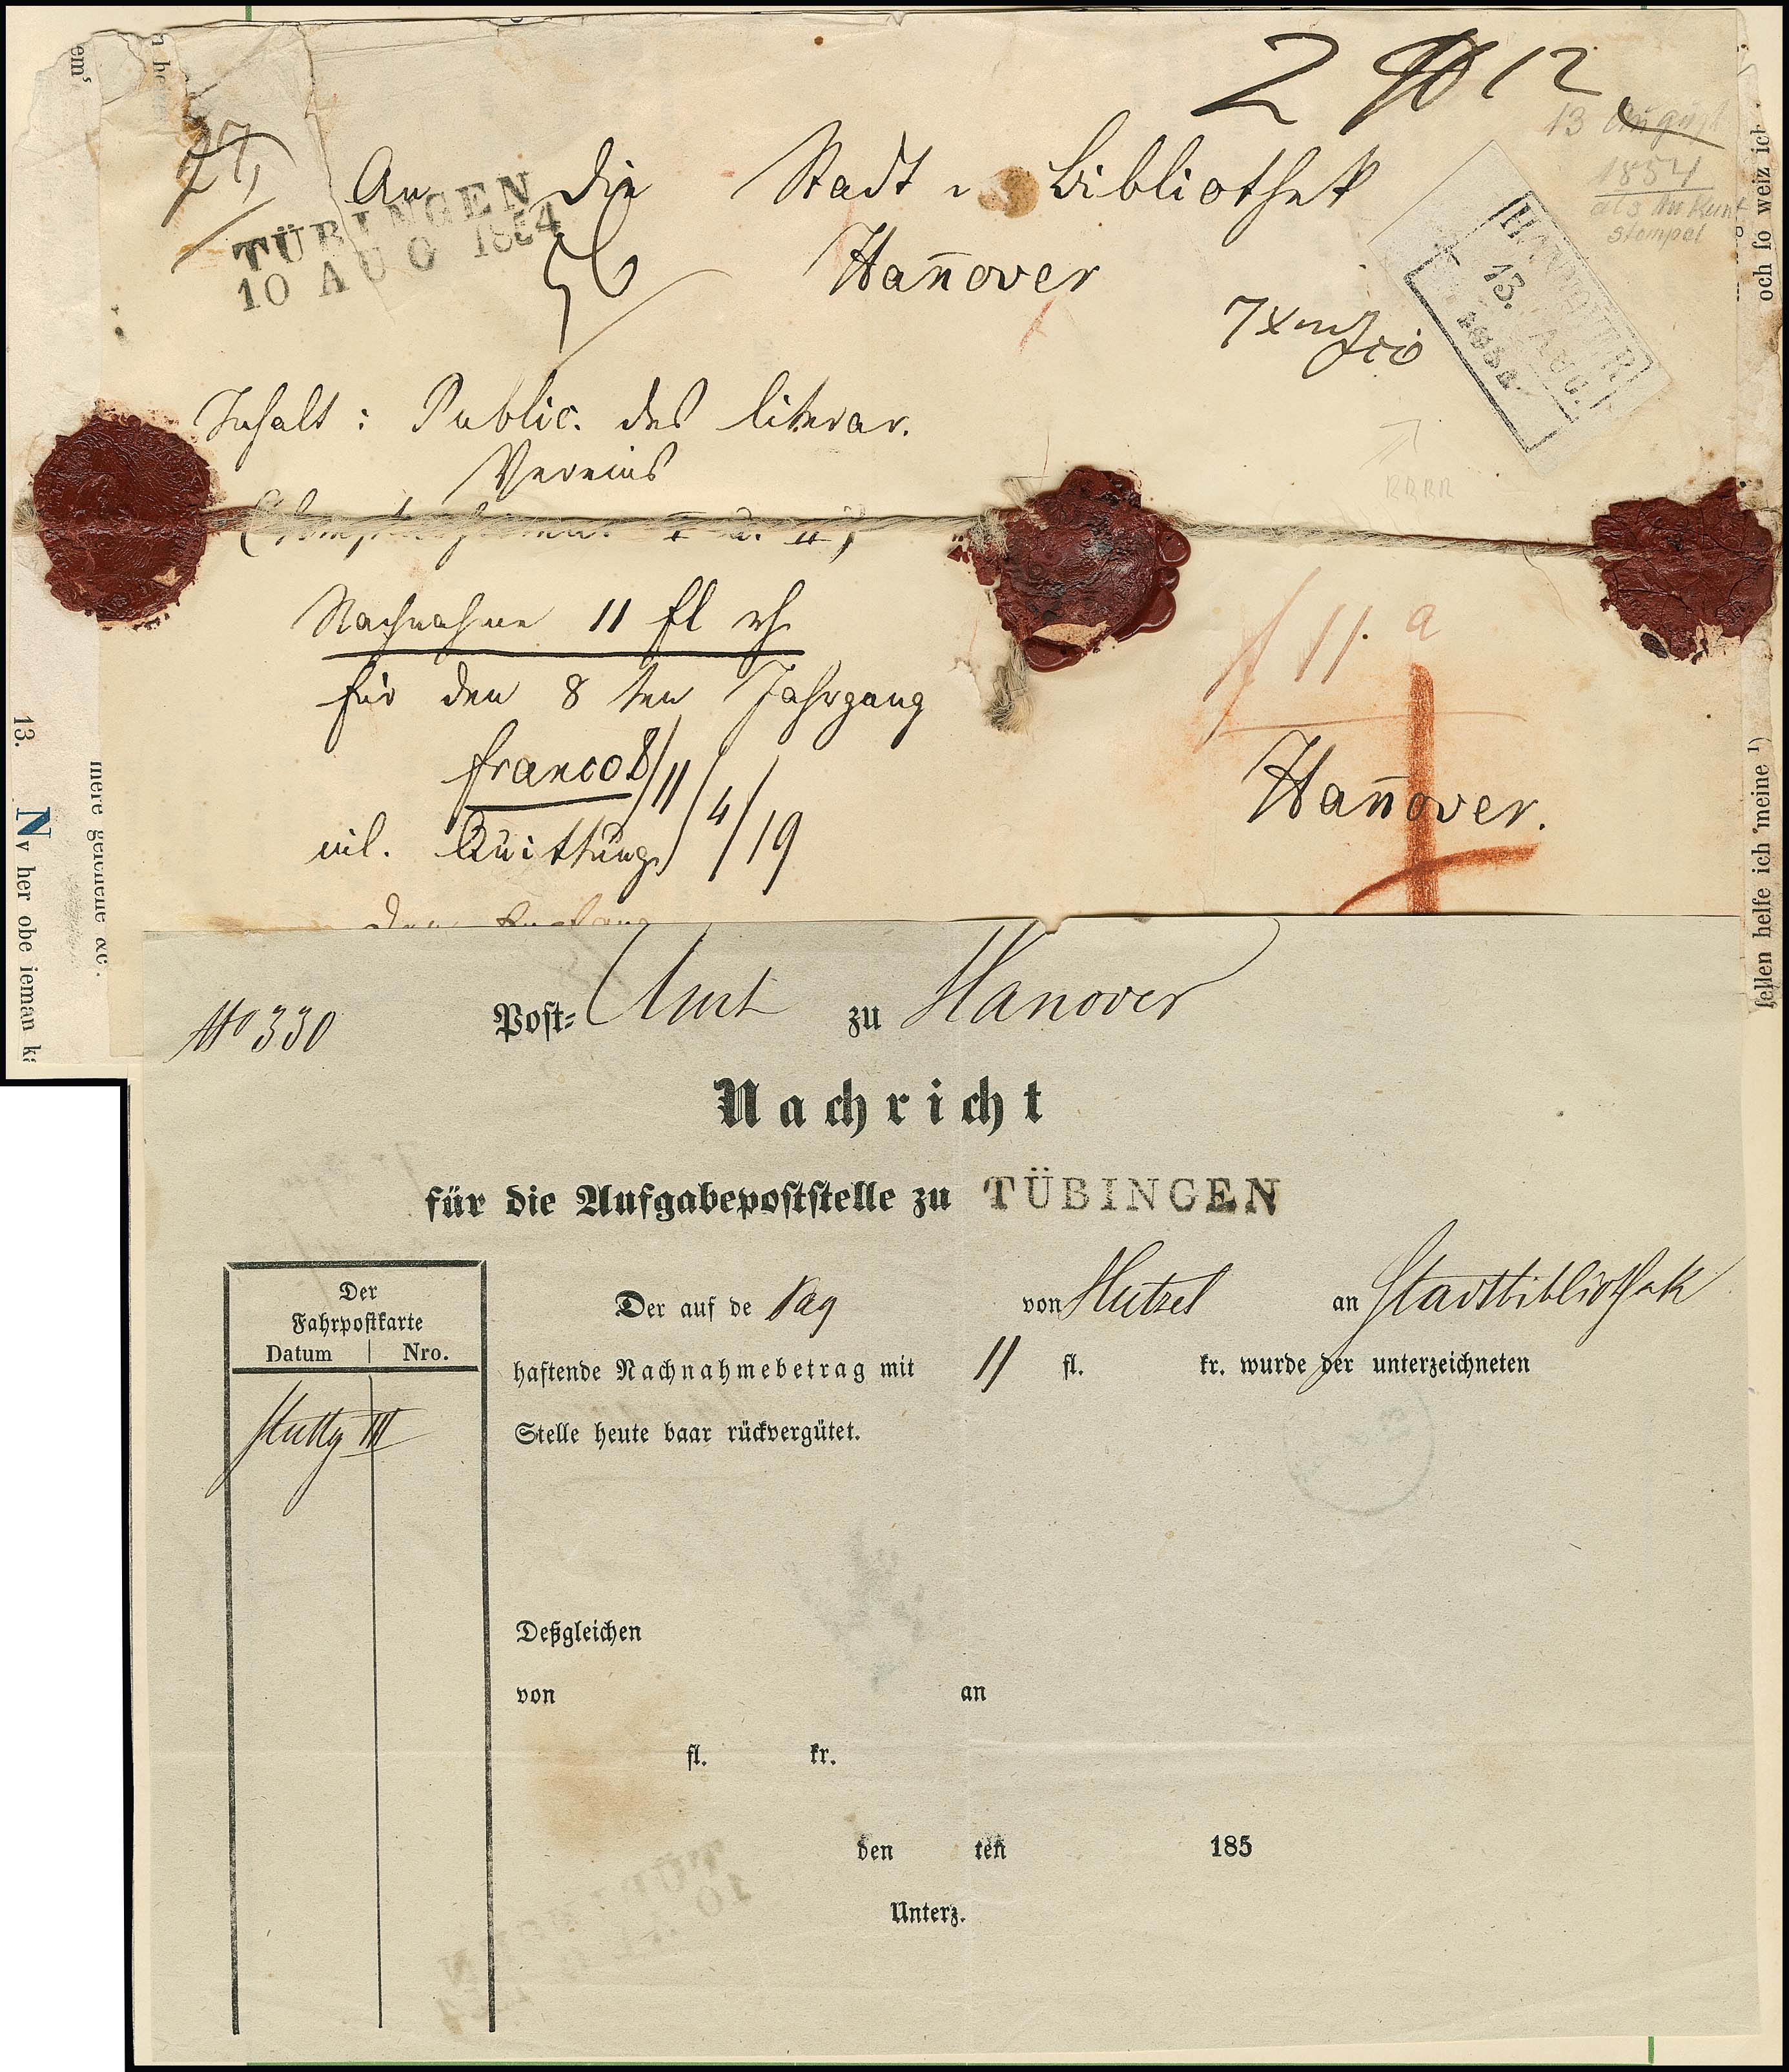 2 12
13 August
1854
als Ankunft
stempel
27,
An die Stadt Bibliothek
TÜBINGEN
10 AUG 1854
56
Hañover
HANNOVER
13. AUG.
Inhalt: Public. des literar.
Vereins
RRRR
I u. II)
Nachnahme 11 fl rh
für den 8 ten Jahrgang
franco 8/11/4/19
incl. Quittung
f 11. a
Hañover.
den Empfang
em
n he
och ſo weiz ich
ſellen helfe ich 'meine ¹)
13.
Nv her obe ieman
mere gehene ꝛc.
No 330 Post- Amt zu Hanover
Nachricht
für die Aufgabepoſtſtelle zu TÜBINGEN
Der
Fahrpoſtkarte
Datum | Nro.
Stuttg III
Der auf de Paq von an Stadtbibliothek
haftende Nachnahmebetrag mit 11 fl. kr. wurde der unterzeichneten
Stelle heute baar rückvergütet.
Deßgleichen
von an
fl. kr.
den ten 185
Unterz.